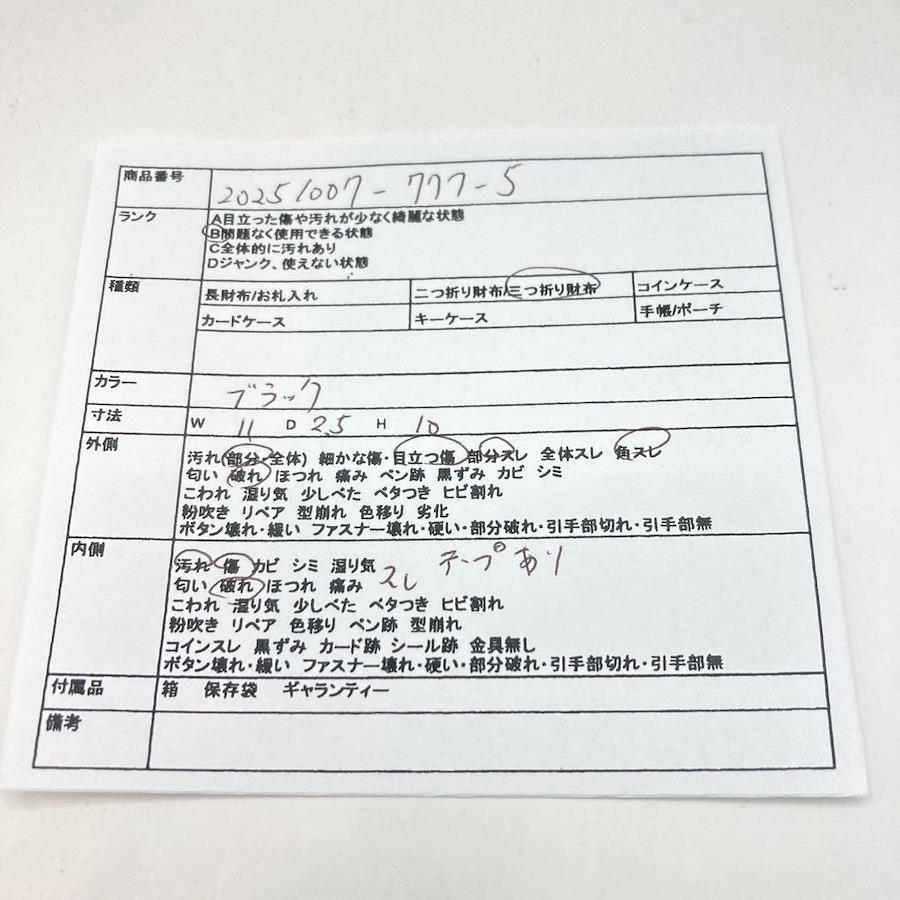 商品番号 20251007-777-5
ランク A目立った傷や汚れが少なく綺麗な状態
B問題なく使用できる状態
C全体的に汚れあり
Dジャンク、使えない状態
種類 長財布/お札入れ 二つ折り財布/三つ折り財布 コインケース
カードケース キーケース 手帳/ポーチ
カラー ブラック
寸法 W 11 D 2.5 H 10
外側 汚れ(部分・全体) 細かな傷・目立つ傷 部分スレ 全体スレ 角スレ
匂い 破れ ほつれ 痛み ペン跡 黒ずみ カビ シミ
こわれ 湿り気 少しべた ベタつき ヒビ割れ
粉吹き リペア 型崩れ 色移り 劣化
ボタン壊れ・緩い ファスナー壊れ・硬い・部分破れ・引手部切れ・引手部無
内側 汚れ 傷 カビ シミ 湿り気 テープあり
匂い 破れ ほつれ 痛み スレ
こわれ 湿り気 少しべた ベタつき ヒビ割れ
粉吹き リペア 色移り ペン跡 型崩れ
コインスレ 黒ずみ カード跡 シール跡 金具無し
ボタン壊れ・緩い ファスナー壊れ・硬い・部分破れ・引手部切れ・引手部無
付属品 箱 保存袋 ギャランティー
備考